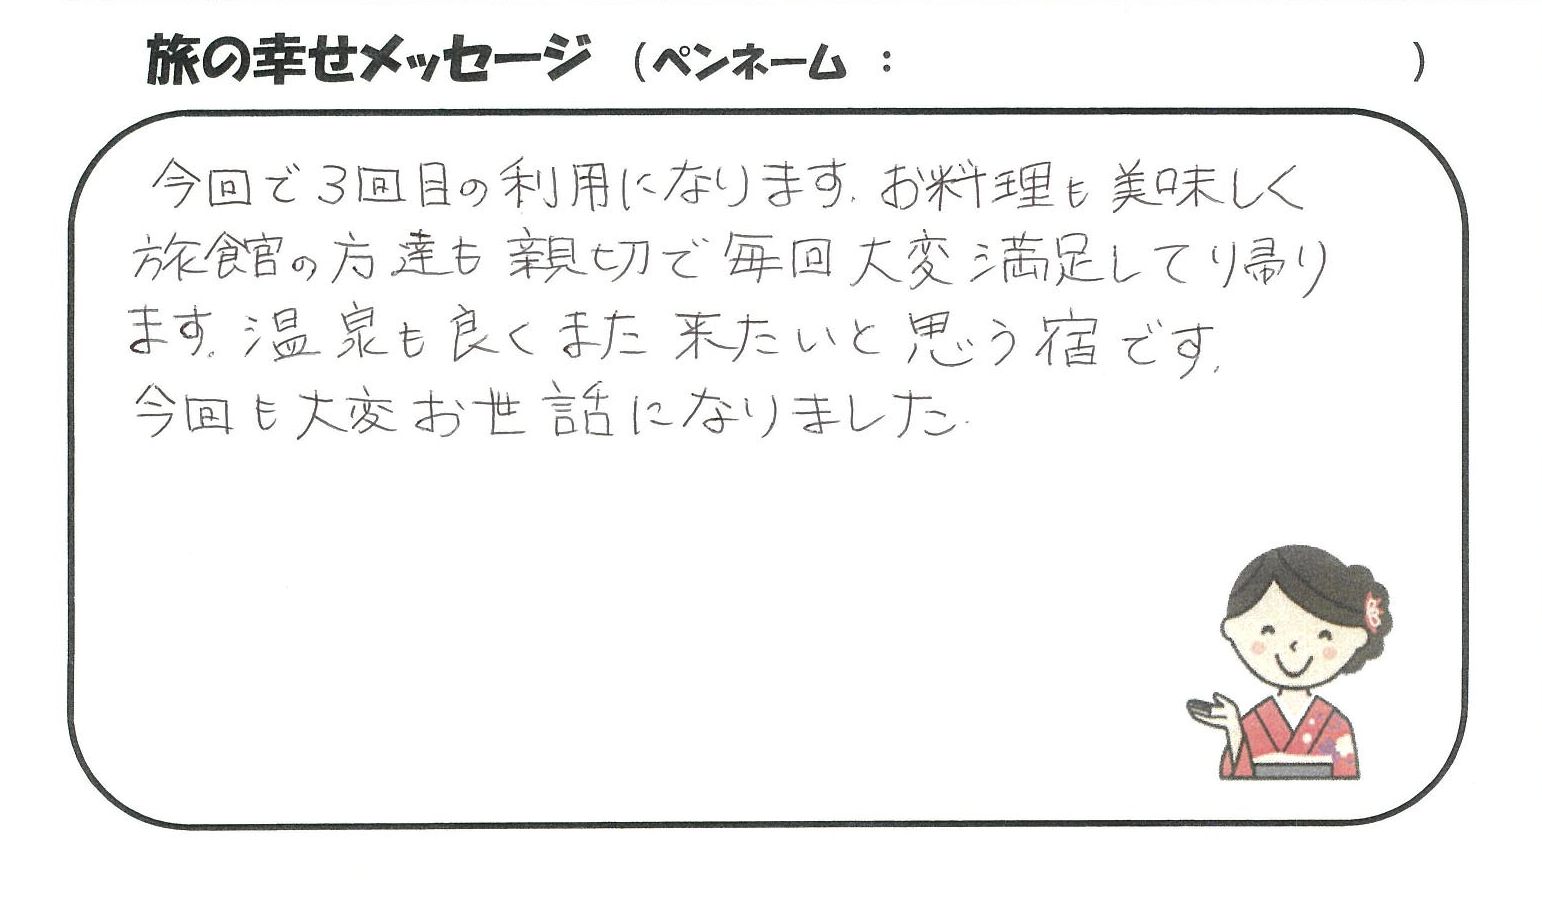 旅の幸せメッセージ （ペンネーム ： ）
今回で3回目の利用になります。お料理も美味しく
旅館の方達も親切で毎回大変満足してり帰り
ます。温泉も良くまた来たいと思う宿です。
今回も大変お世話になりました。